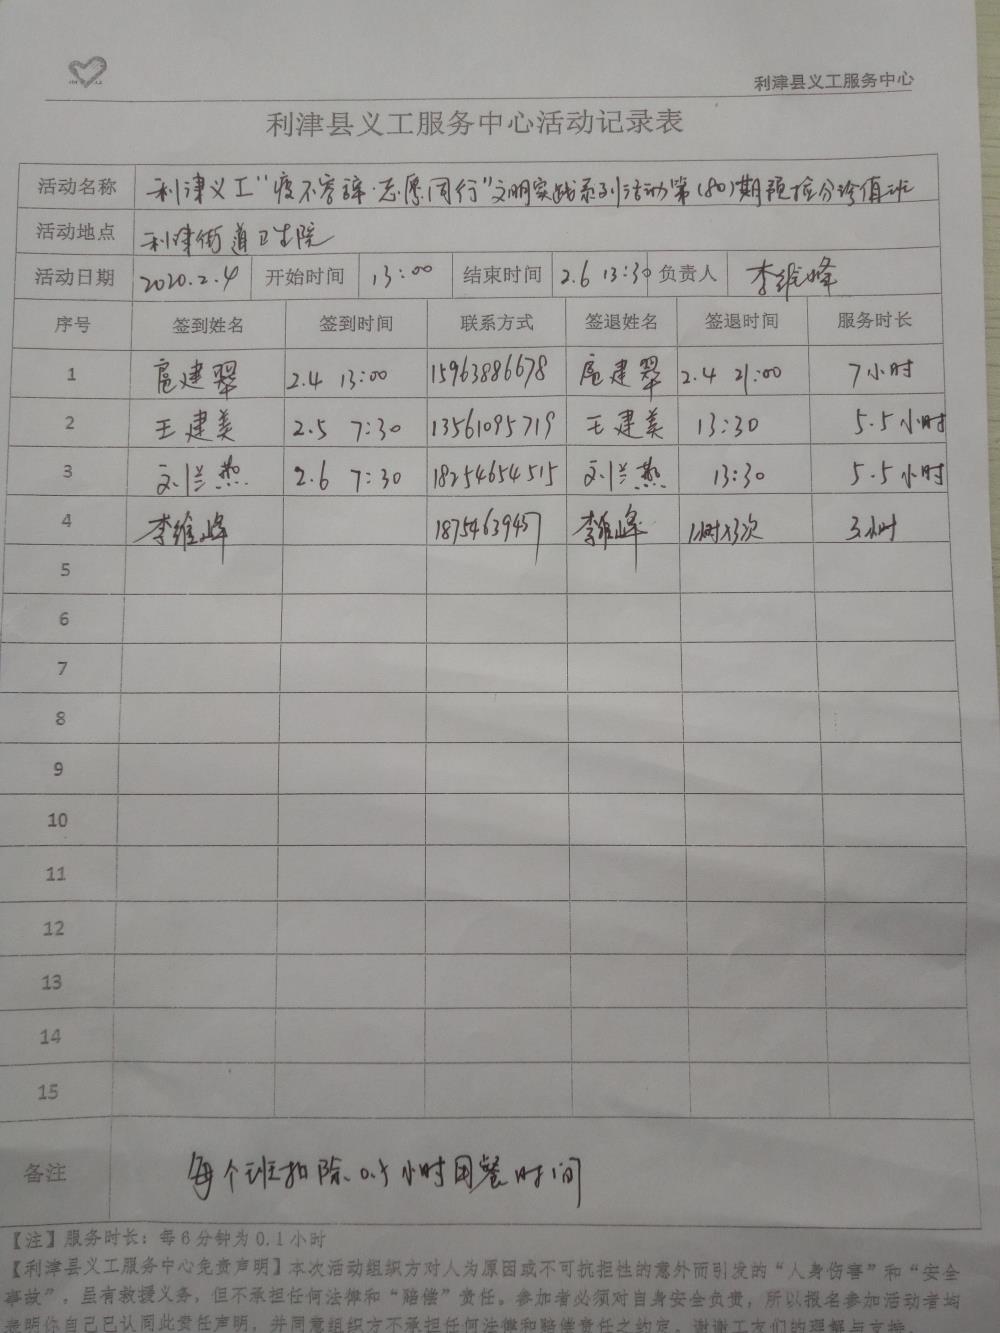 利津县义工服务中心
利津县义工服务中心活动记录表
活动名称 利津义工"疫不容辞·志愿同行"文明实践系列活动第(80)期预检分诊值班
活动地点 利津街道卫生院
活动日期 2020.2.4 开始时间 13:00 结束时间 2.6 13:30 负责人 李维峰
序号 签到姓名 签到时间 联系方式 签退姓名 签退时间 服务时长
1 扈建翠 2.4 13:00 15963886678 扈建翠 2.4 21:00 7小时
2 王建美 2.5 7:30 13561095719 王建美 13:30 5.5小时
3 刘兰燕 2.6 7:30 18254654515 刘兰燕 13:30 5.5小时
4 李维峰 18754639457 李维峰 1小时×3次 3小时
5
6
7
8
9
10
11
12
13
14
15
备注 每个班扣除0.5小时用餐时间
【注】服务时长：每6分钟为0.1小时
【利津县义工服务中心免责声明】本次活动组织方对人为原因或不可抗拒性的意外而引发的“人身伤害”和“安全
事故”，虽有救援义务，但不承担任何法律和“赔偿”责任。参加者必须对自身安全负责，所以报名参加活动者均
表明你自己已认同此责任声明，并同意组织方不承担任何法律和赔偿责任之约定，谢谢工友们的理解与支持。